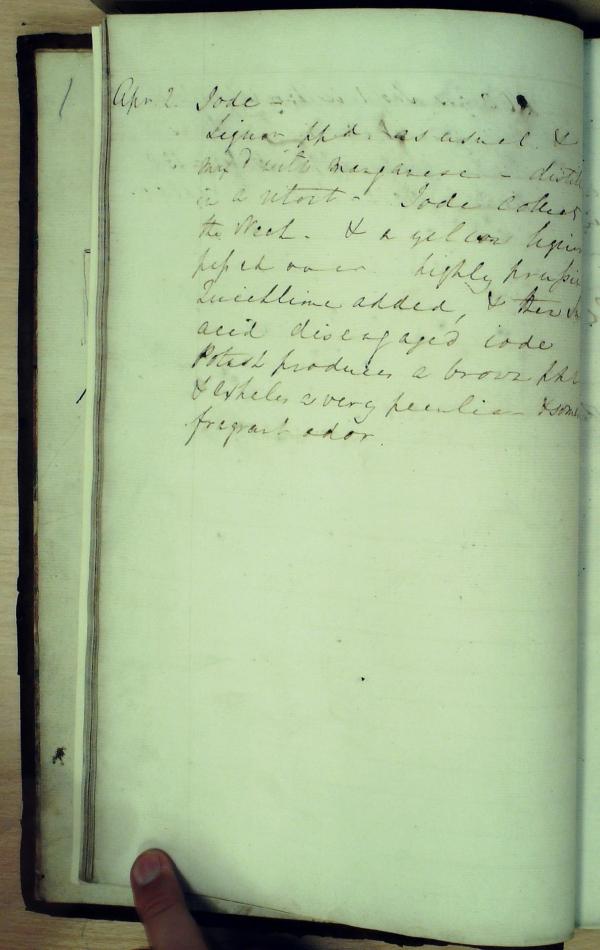 Apr. 2. Iode
Liquor ppd. as usual. &
mxd with manganese - distill
in a retort - Iode collect
the Neck. & a yellow liquor
passed over highly prussic
Quicklime added, & then
acid disengaged iode
Potash produces a brown ppt
& exhales a very peculiar & some
fragrant odor.